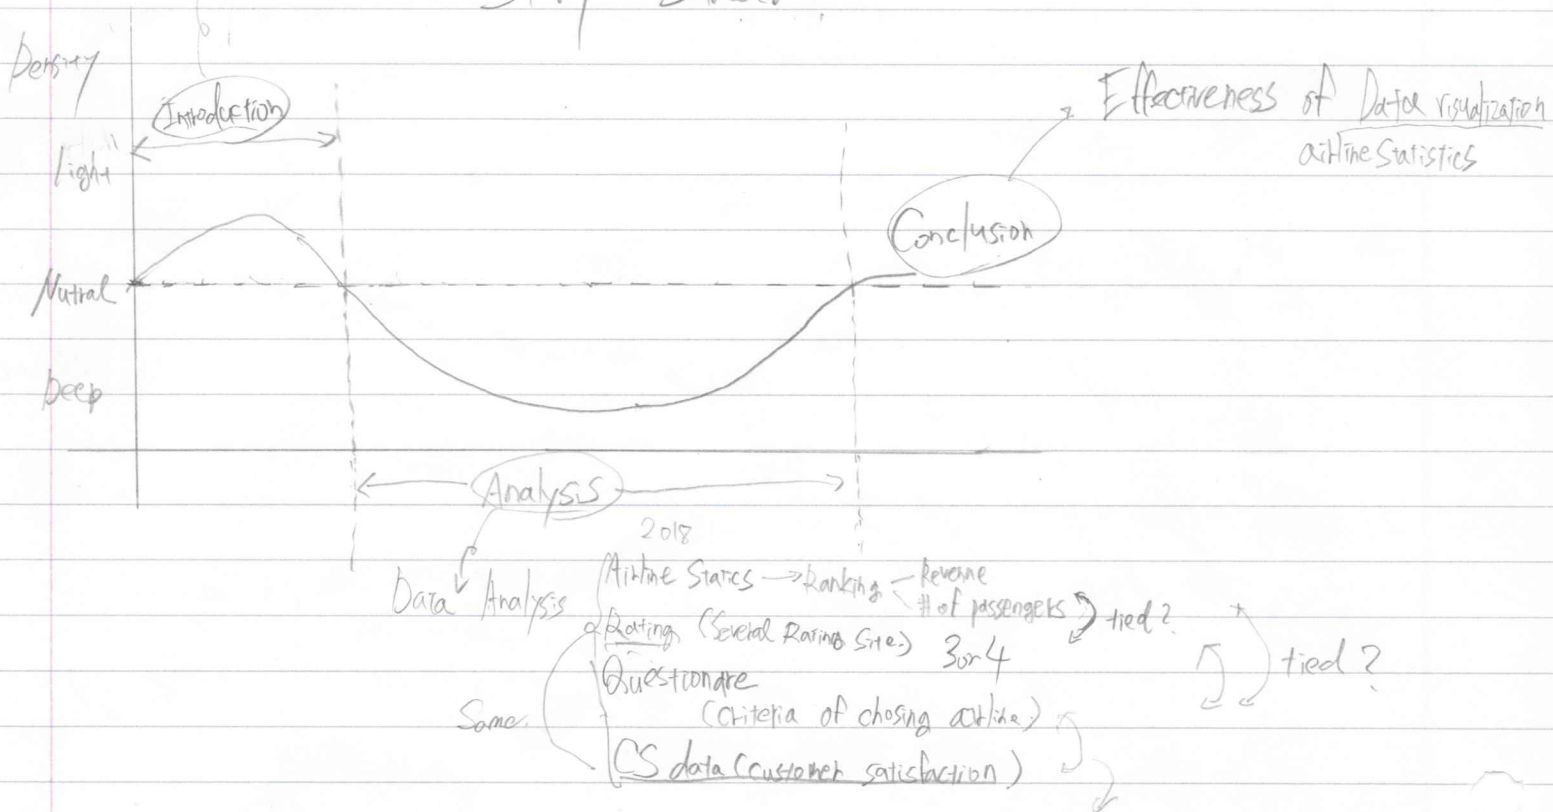 Density
Introduction
Light
Nutral
Deep
Conclusion
Effectiveness of Data visualization
airline statistics
Analysis
2018
Data Analysis
Airline Statics → Ranking
Revenue
# of passengers
tied?
Rating (Several Rating Site.) 3 or 4
tied?
Questionare
(criteria of chosing airline.)
Same.
CS data (customer satisfaction)